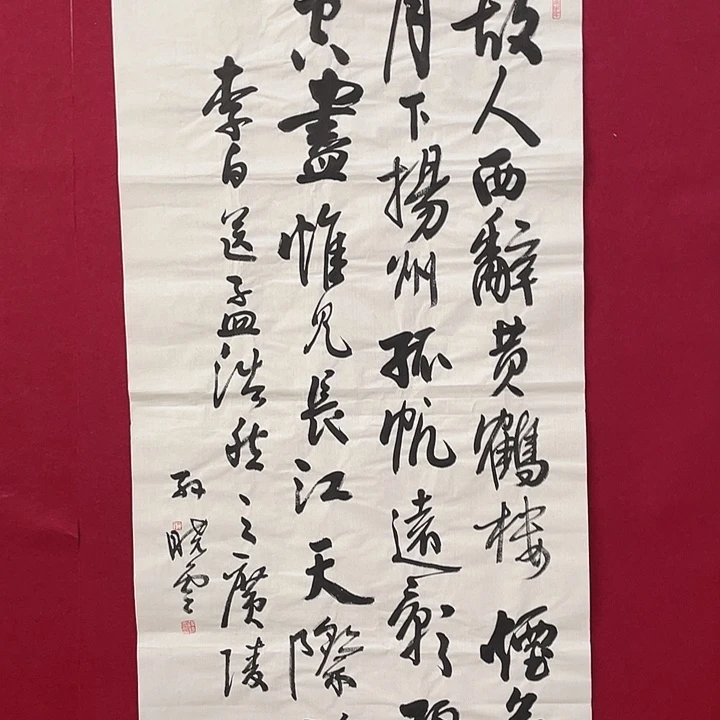 故人西辭黄鶴樓煙
月下揚州孤帆遠影碧
空盡惟見長江天際
李白送孟浩然之廣陵
孙曉雲